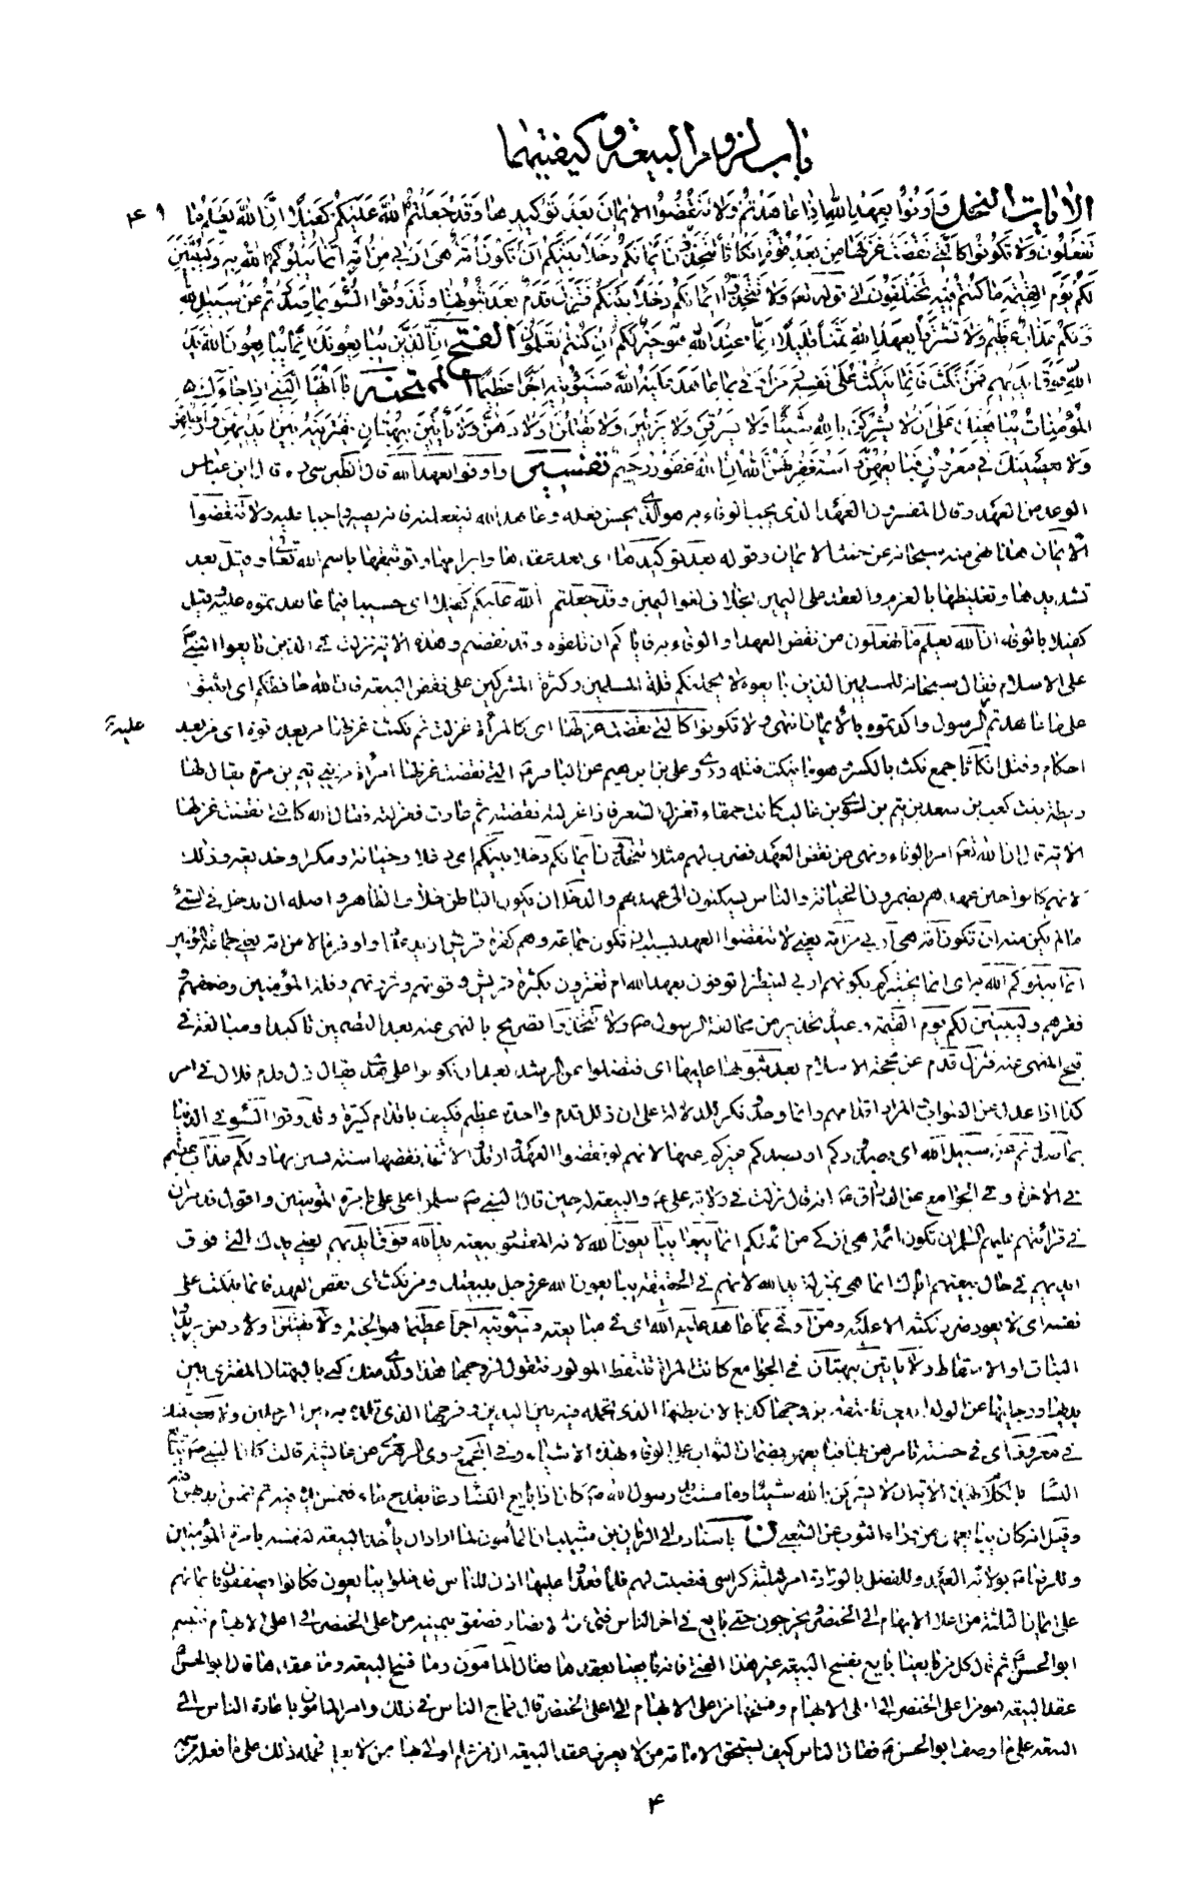 باب لزوم البيعة وكيفيتها
الآيات النحل وَأَوْفُوا بِعَهْدِ اللَّهِ إِذَا عَاهَدْتُمْ وَلَا تَنْقُضُوا الْأَيْمَانَ بَعْدَ تَوْكِيدِهَا وَقَدْ جَعَلْتُمُ اللَّهَ عَلَيْكُمْ كَفِيلًا إِنَّ اللَّهَ يَعْلَمُ مَا
تَفْعَلُونَ وَلَا تَكُونُوا كَالَّتِي نَقَضَتْ غَزْلَهَا مِنْ بَعْدِ قُوَّةٍ أَنْكَاثًا تَتَّخِذُونَ أَيْمَانَكُمْ دَخَلًا بَيْنَكُمْ أَنْ تَكُونَ أُمَّةٌ هِيَ أَرْبَى مِنْ أُمَّةٍ إِنَّمَا يَبْلُوكُمُ اللَّهُ بِهِ وَلَيُبَيِّنَنَّ
لَكُمْ يَوْمَ الْقِيٰمَةِ مَا كُنْتُمْ فِيهِ تَخْتَلِفُونَ الى قوله تعالى وَلَا تَتَّخِذُوا أَيْمَانَكُمْ دَخَلًا بَيْنَكُمْ فَتَزِلَّ قَدَمٌ بَعْدَ ثُبُوتِهَا وَتَذُوقُوا السُّوءَ بِمَا صَدَدْتُمْ عَنْ سَبِيلِ اللَّهِ
وَلَكُمْ عَذَابٌ عَظِيمٌ وَلَا تَشْتَرُوا بِعَهْدِ اللَّهِ ثَمَنًا قَلِيلًا إِنَّمَا عِنْدَ اللَّهِ هُوَ خَيْرٌ لَكُمْ إِنْ كُنْتُمْ تَعْلَمُونَ الفتح إِنَّ الَّذِينَ يُبَايِعُونَكَ إِنَّمَا يُبَايِعُونَ اللَّهَ يَدُ
اللَّهِ فَوْقَ أَيْدِيهِمْ فَمَنْ نَكَثَ فَإِنَّمَا يَنْكُثُ عَلَى نَفْسِهِ وَمَنْ أَوْفَى بِمَا عَاهَدَ عَلَيْهُ اللَّهَ فَسَيُؤْتِيهِ أَجْرًا عَظِيمًا الممتحنة يَا أَيُّهَا النَّبِيُّ إِذَا جَاءَكَ
الْمُؤْمِنَاتُ يُبَايِعْنَكَ عَلَى أَنْ لَا يُشْرِكْنَ بِاللَّهِ شَيْئًا وَلَا يَسْرِقْنَ وَلَا يَزْنِينَ وَلَا يَقْتُلْنَ أَوْلَادَهُنَّ وَلَا يَأْتِينَ بِبُهْتَانٍ يَفْتَرِينَهُ بَيْنَ أَيْدِيهِنَّ وَأَرْجُلِهِنَّ
وَلَا يَعْصِينَكَ فِي مَعْرُوفٍ فَبَايِعْهُنَّ وَاسْتَغْفِرْ لَهُنَّ اللَّهَ إِنَّ اللَّهَ غَفُورٌ رَحِيمٌ تفسير وأوفوا بعهد الله قال الطبرسي ره قال ابن عباس
الوعد من العهد وقال المفسرون العهد الذي يجب الوفاء به هو الذي يحسن فعله وعاهد الله ليفعلنه فانه يصير واجبا عليه ولا تنقضوا
الأيمان هذا نهي منه سبحانه عن حنث الايمان وقوله بعد توكيدها اي بعد عقدها وابرامها وتوثيقها باسم الله تعالى وقيل بعد
تشديدها وتغليظها بالعزم والعقد على اليمين بخلاف لغو اليمين وقد جعلتم الله عليكم كفيلا اي حسيبا فيما عاهدتموه عليه وقيل
كفيلا بالوفاء ان الله يعلم ما تفعلون من نقض العهد او الوفاء به فاياكم ان تلقوه وقد نقضتم وهذه الآية نزلت في الذين بايعوا النبي ص
على الاسلام فقال سبحانه للمسلمين الذين بايعوه لا يحملنكم قلة المسلمين وكثرة المشركين على نقض البيعة فان الله حافظكم اي اثبتوا
على ما عاهدتم الرسول واكدتموه بالأيمان انتهى ولا تكونوا كالتي نقضت غزلها اي كالمرأة غزلت ثم نكثت غزلها من بعد قوة اي من بعد
احكام وفتل أنكاثا جمع نكث بالكسر وهو ما ينكث فتله وروى علي بن ابرهيم عن الباقر ع التي نقضت غزلها امرأة من بني تيم بن مرة يقال لها
ريطة بنت كعب بن سعد بن تيم بن لوي بن غالب كانت حمقاء تغزل الشعر فاذا غزلته نقضته ثم عادت فغزلته فقال الله كالتي نقضت غزلها
الآية قال ان الله تعالى امر بالوفاء ونهى عن نقض العهد فضرب لهم مثلا تتخذون أيمانكم دخلا بينكم اي دغلا وخيانة ومكرا وخديعة وذلك
لانهم كانوا حين عهدهم يضمرون الخيانة والناس يسكنون الى عهدهم والدخل ان يكون الباطن خلاف الظاهر واصله ان يدخل في الشيء
ما لم يكن منه أن تكون أمة هي أربى من أمة يعني لا تنقضوا العهد بسبب ان تكون جماعة وهم كفرة قريش ازيد عددا واوفر مالا من امة يعني جماعة المؤمنين
إنما يبلوكم الله به اي انما يختبركم بكونهم اربى لينظر اتوفون بعهد الله ام تغترون بكثرة قريش وقوتهم وثروتهم وقلة المؤمنين وضعفهم
وفقرهم وليبينن لكم يوم القيٰمة وعيد وتحذير من مخالفة الرسول ص ولا تتخذوا تصريح بالنهي عنه بعد التضمين تاكيدا ومبالغة في
قبح المنهي عنه فتزل قدم عن محجة الاسلام بعد ثبوتها عليها اي فتضلوا عن الرشد بعد ان تكونوا على هدى يقال زل قدم فلان في امر
كذا اذا عدل عن الصواب والمراد اقدامهم وانما وحد ونكر للدلالة على ان زلل قدم واحدة عظيم فكيف باقدام كثيرة وتذوقوا السوء في الدنيا
بما صددتم عن سبيل الله اي بصدودكم او بصدكم غيركم عنها لانهم لو نقضوا العهد وارتدوا لاتخذ نقضها سنة يستن بها ولكم عذاب عظيم
في الآخرة وفي الجوامع عن الصادق ع انه قال نزلت في ولاية علي ع والبيعة له حين قال النبي ص سلموا على علي بامرة المؤمنين واقول قد مر ان
في قرائتهم عليهم السلام ان تكون ائمة هي ازكى من ائمتكم إنما يبايعون الله لانه المقصود ببيعته يد الله فوق أيديهم يعني يدك التي فوق
ايديهم في حال بيعتهم اياك انما هي بمنزلة يد الله لانهم في الحقيقة يبايعون الله عز وجل ببيعتك ومن نكث اي نقض العهد فانما ينكث على
نفسه اي لا يعود ضرر نكثه الا عليه ومن أوفى بما عاهد عليه الله اي في مبايعته فسيؤتيه أجرا عظيما هو الجنة ولا يقتلن أولادهن يريد وأد
البنات او الاسقاط ولا يأتين ببهتان في الجوامع كانت المرأة تلتقط المولود فتقول لزوجها هذا ولدي منك كنى بالبهتان المفترى بين
يديها ورجليها عن الولد الذي تلصقه بزوجها كذبا لان بطنها الذي تحمله فيه بين اليدين وفرجها الذي تلده به بين الرجلين ولا يعصينك
في معروف اي في حسنة تامرهن بها فبايعهن بضمان الثواب على الوفاء بهذه الاشياء وفي المجمع روى الزهري عن عائشة قالت كان النبي ص يبايع
النساء بالكلام بهذه الآية ان لا يشركن بالله شيئا وما مست يد رسول الله ص كان اذا بايع النساء دعا بقدح ماء فغمس يده فيه ثم غمسن ايديهن فيه
وقيل انه كان يبايعهن من وراء الثوب عن الشعبي ن باسناده الى الريان بن شبيب ان المأمون لما اراد ان يأخذ البيعة لنفسه بامرة المؤمنين
وللرضا ع بولاية العهد وللفضل بالوزارة امر بثلثة كراسي فنصبت لهم فلما قعدوا عليها اذن للناس فدخلوا يبايعون فكانوا يصفقون بايمانهم
على ايمان الثلثة من اعلا الابهام الى الخنصر ويخرجون حتى بايع في اخر الناس فتى من الانصار فصفق بيمينه من اعلى الخنصر الى اعلى الابهام فتبسم
ابو الحسن ع ثم قال كل من بايعنا بايع بفسخ البيعة غير هذا الفتى فانه بايعنا بعقدها فقال المأمون وما فسخ البيعة وما عقدها قال ابو الحسن ع
عقد البيعة هو من اعلى الخنصر الى اعلى الابهام وفسخها من اعلى الابهام الى اعلى الخنصر قال فماج الناس في ذلك وامر المأمون باعادة الناس الى
البيعة على ما وصف ابو الحسن ع فقال الناس كيف يستحق الامامة من لا يعرف عقد البيعة ان من علم اولى بها ممن لا يعلم فحمله ذلك على ما فعله من سمه
۴